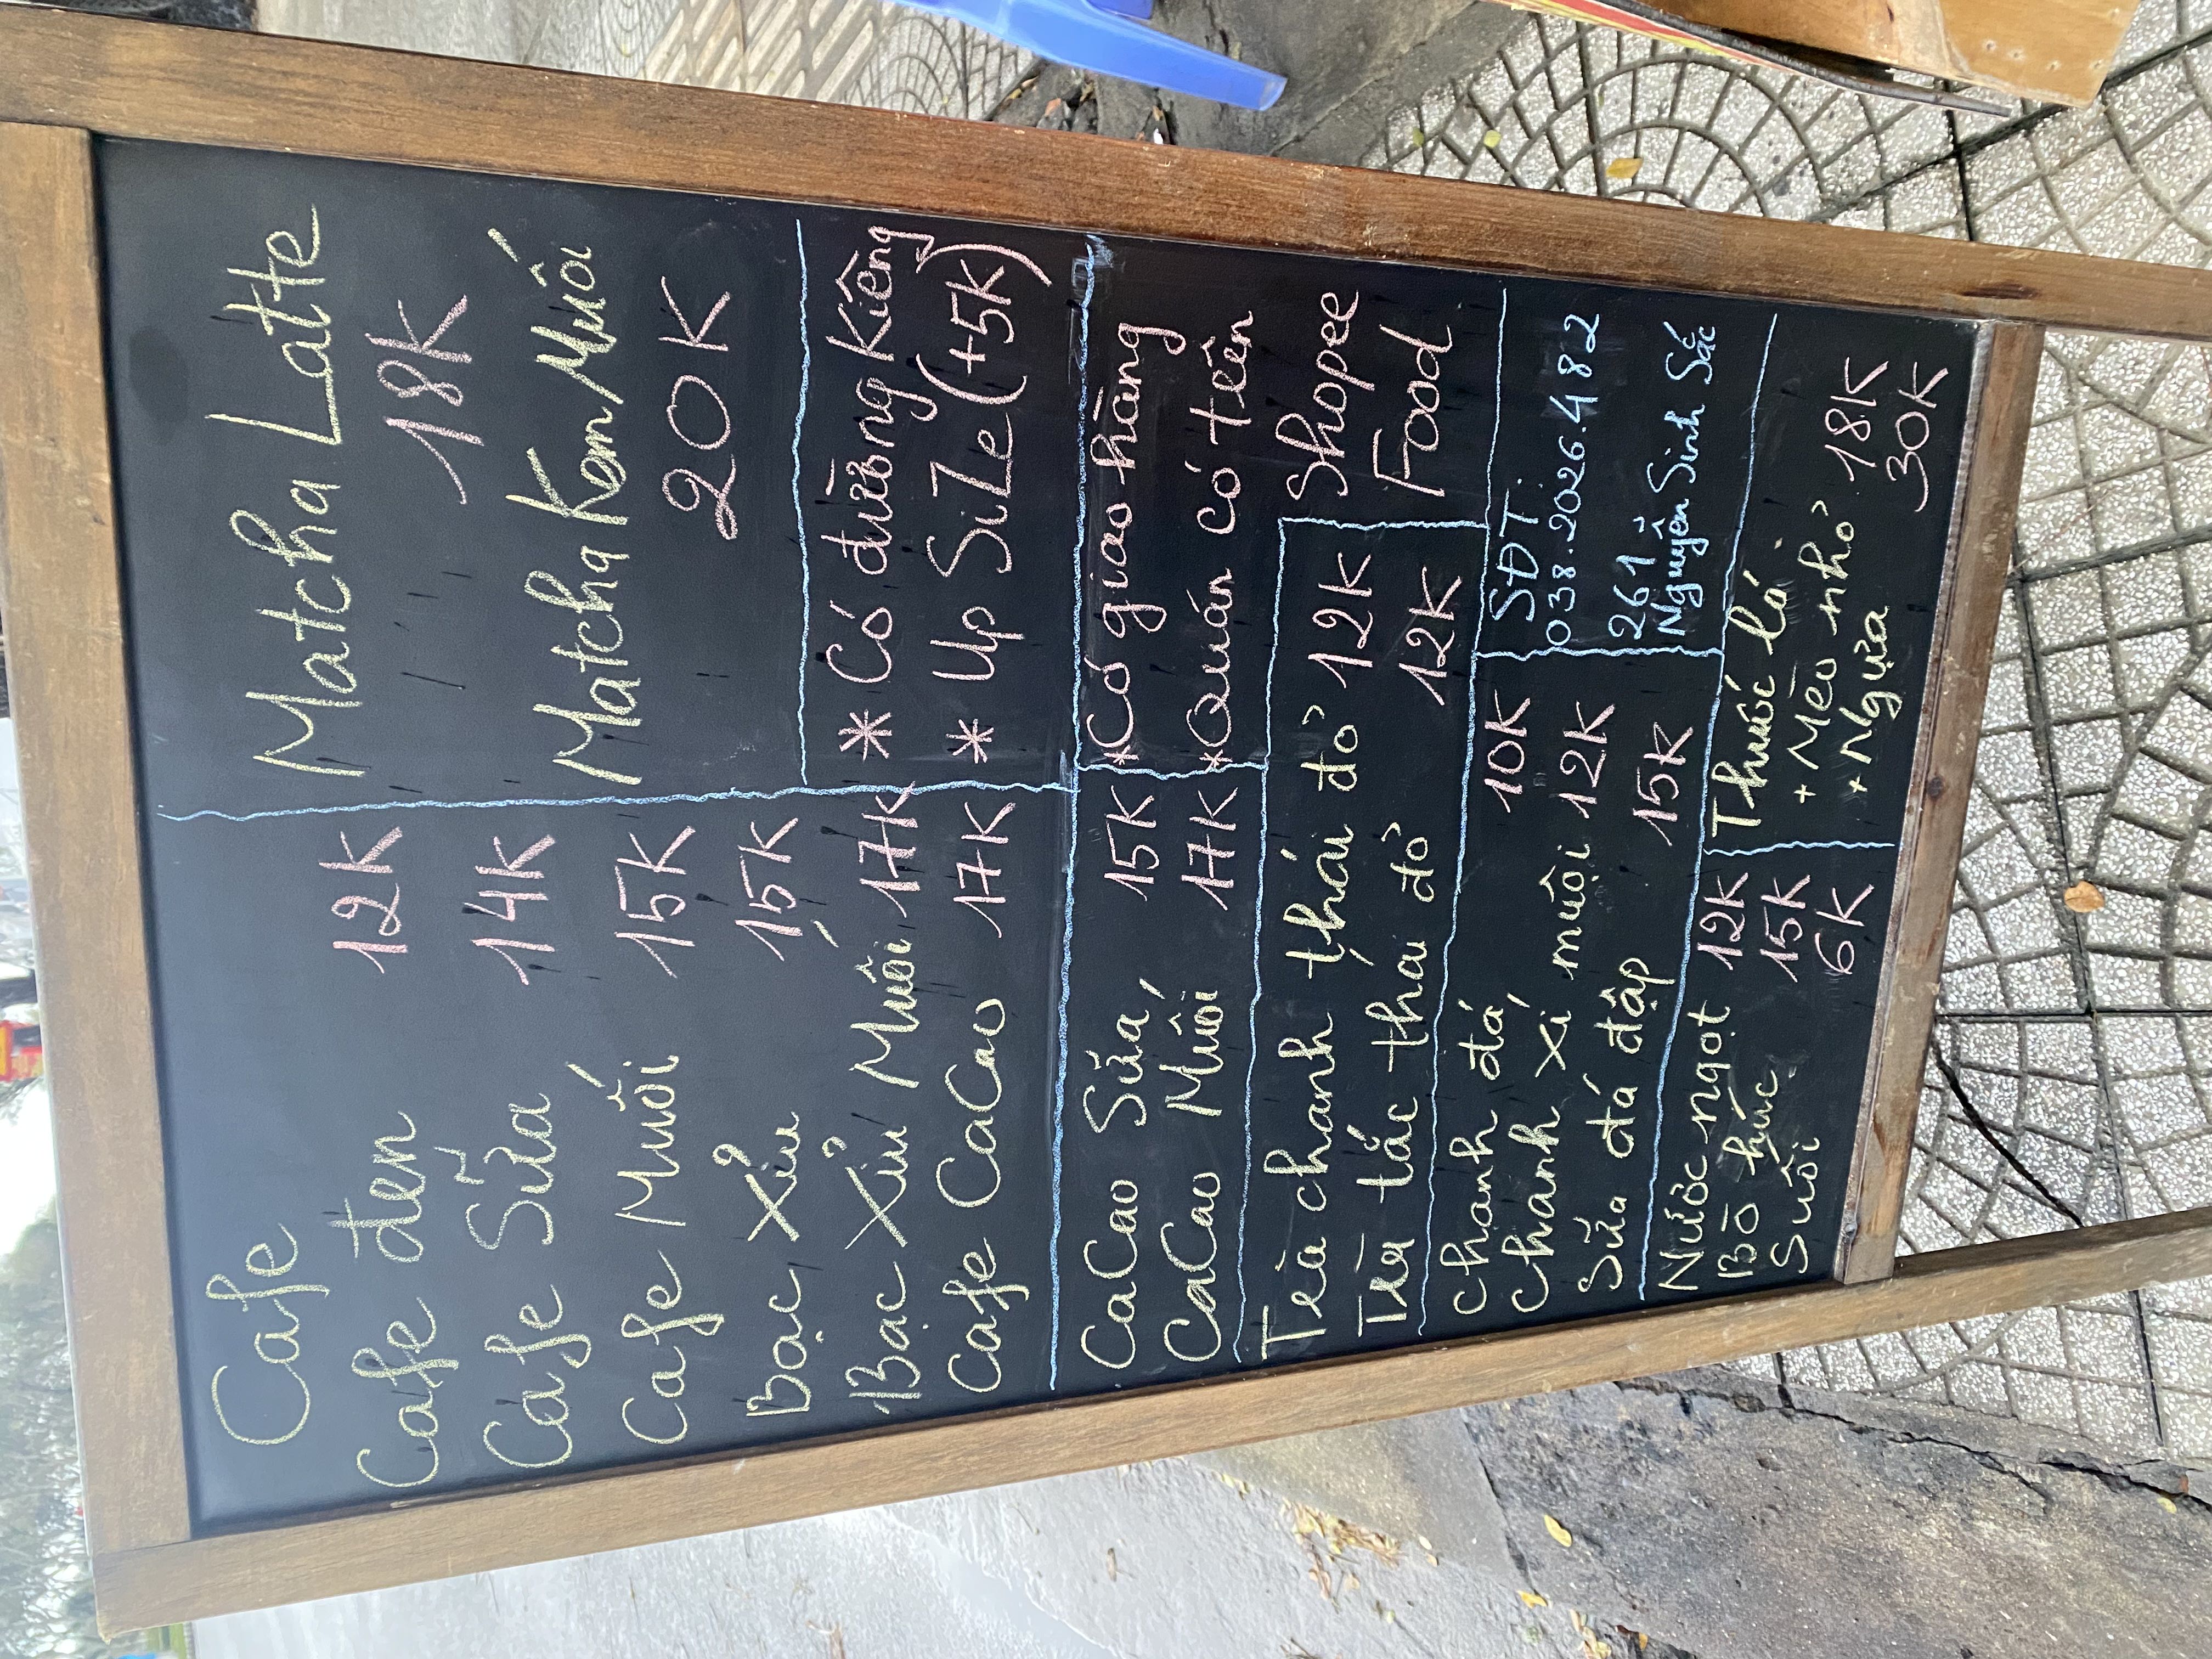 Cafe
Cafe đen 12K
Cafe Sữa 14K
Cafe Muối 15K
Bạc Xỉu 15K
Bạc Xỉu Muối 17K
Cafe CaCao 17K
Matcha Latte
18K
Matcha Kem Muối
20K
* Có đường kiêng
* Up SiZe (+5K)
CaCao Sữa 15K
CaCao Muối 17K
*Có giao hàng
*Quán có trên
Shopee
Food
Trà chanh thái đỏ 12K
Trà tắc thái đỏ 12K
Chanh đá 10K
Chanh xí muội 12K
Sữa đá đập 15K
SĐT:
038.2026.482
261
Nguyễn Sinh Sắc
Nước ngọt 12K
Bò húc 15K
Suối 6K
Thuốc lá
+ Mèo nhỏ 18K
+ Ngựa 30K